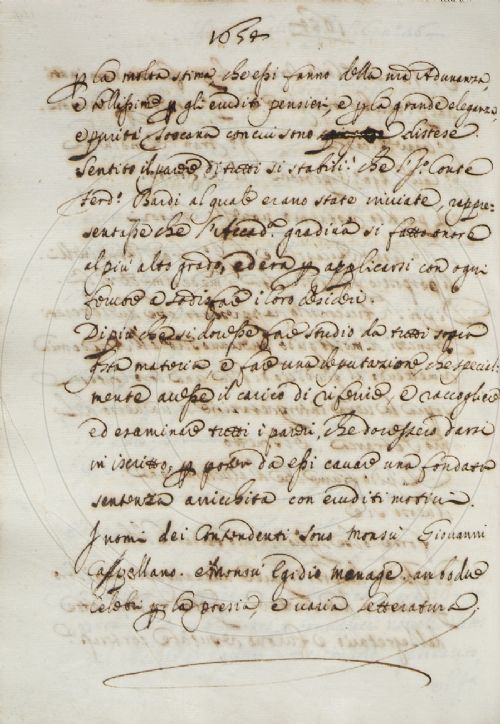 1654
p la molta stima, che essi fanno della nra Adunanza,
e bellissime p gli eruditi pensieri, e p la grande eleganza,
e purità Toscana con cui sono distese.
Sentito il parere di tutti si stabilì: che l' Sr Conte
Ferd.o Bardi al quale erano state inviate, rappre-
sentasse che l'Accad.a gradiva si fatto onore
al più alto grado, ed era p applicarsi con ogni
fervore a sodisfare i loro desideri.
Di più che si dovesse fare studio da tutti sopra
qsta materia e fare una deputazione che special-
mente avesse il carico di riferire, e raccogliere
ed esaminare tutti i pareri, che dovessero darsi
in iscritto, p poter da essi cavare una fondata
sentenza arricchita con eruditi motivi.
I nomi dei Contendenti sono Monsù Giovanni
Cappellano. e Monsù Egidio Menage. ambodue
celebri p la poesia, e varia letteratura.